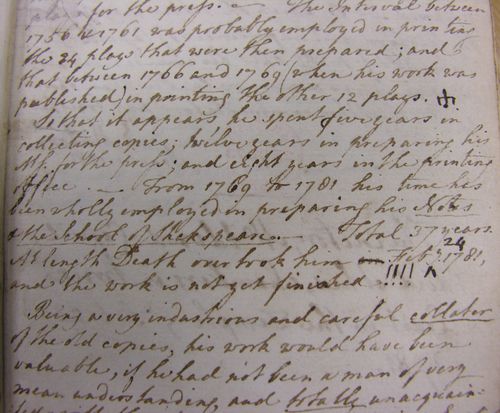 for the press. — The Interval between
1756 & 1761 was probably employed in printing
the 24 plays that were then prepared; and
that between 1766 and 1769 (when his work was
published) in printing the other 12 plays.
So that it appears he spent five years in
collecting copies; twelve years in preparing his
Ms. for the press; and eight years in the printing
office. — From 1769 to 1781 his time has
been wholly employed in preparing his Notes
& the School of Shakspeare. — Total 37 years.
At length Death overtook him Feb. 24 1781,
and the work is not yet finished !!!!
Being a very industrious and careful collater
of the old copies, his work would have been
valuable, if he had not been a man of very
mean understanding, and totally unacquain-